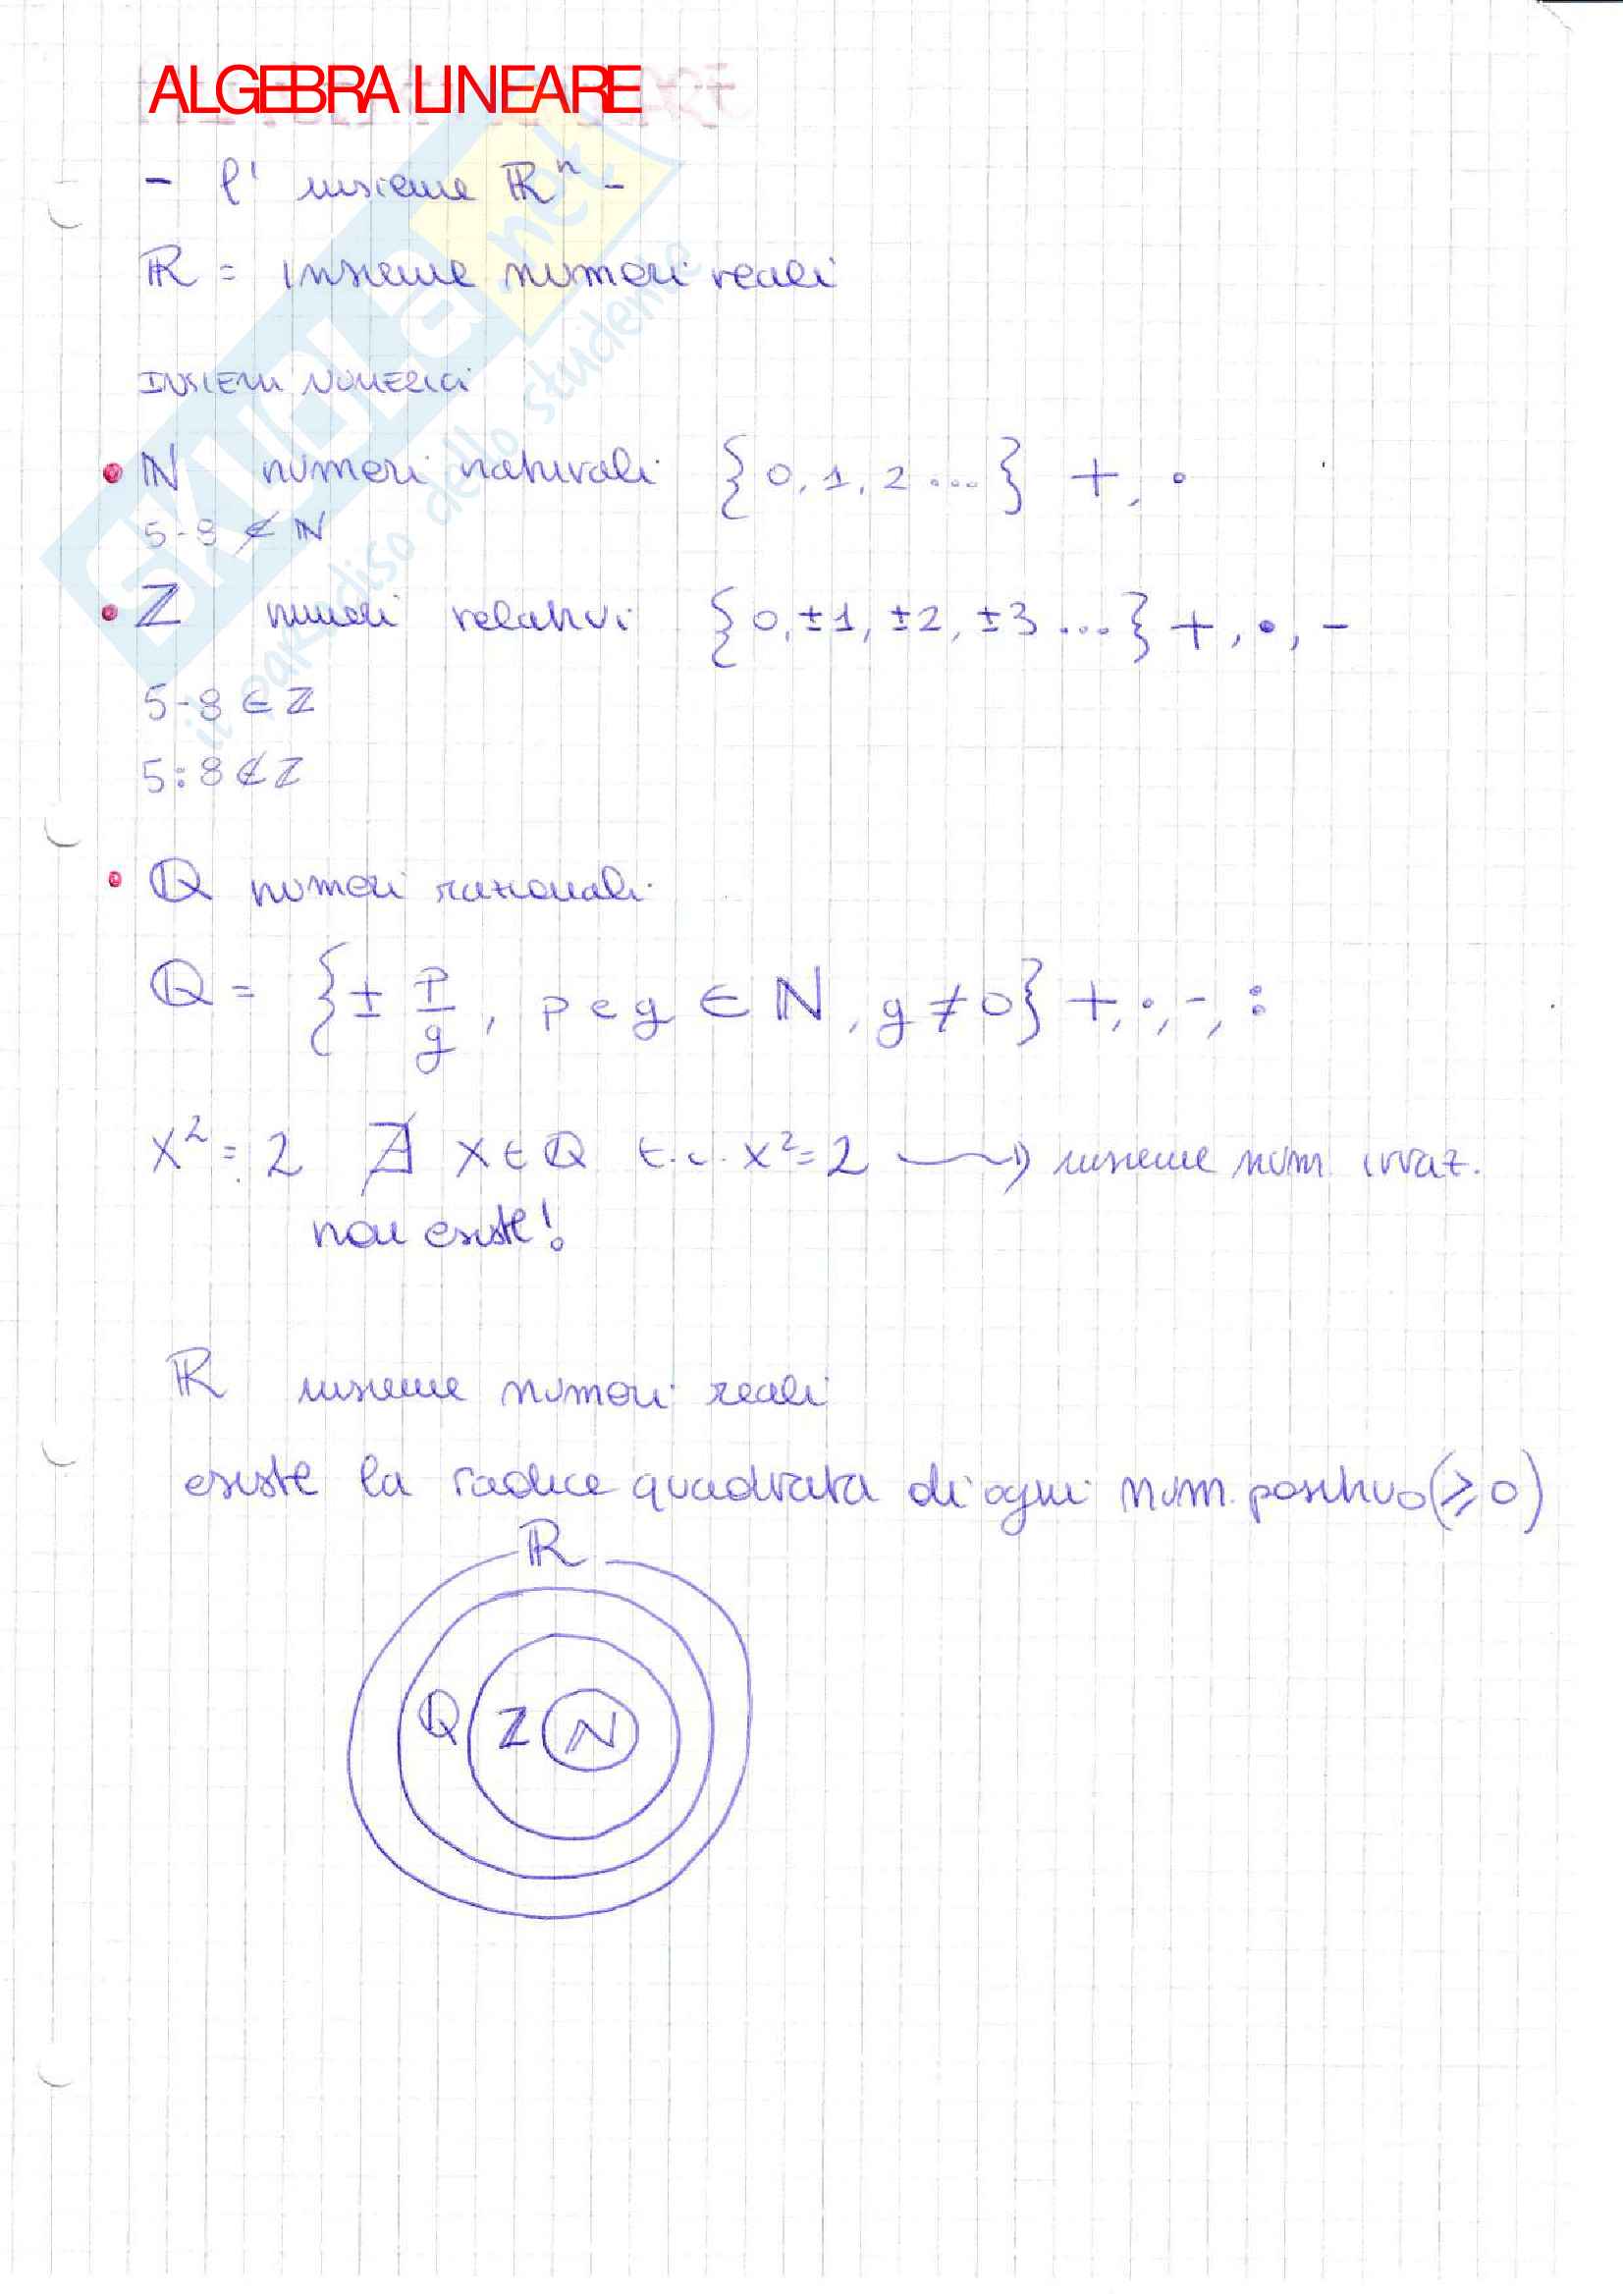 ALGEBRA LINEARE
- l' insieme ℝⁿ -
ℝ = insieme numeri reali
INSIEMI NUMERICI
• ℕ numeri naturali {0, 1, 2 ...} +, ·
5-8 ∉ ℕ
• ℤ numeri relativi {0, ±1, ±2, ±3 ...} +, ·, -
5-8 ∈ ℤ
5:8 ∉ ℤ
• ℚ numeri razionali
ℚ = {± p/q, p e q ∈ ℕ, q ≠ 0} +, ·, -, :
x² = 2 ∄ x ∈ ℚ t.c. x² = 2 → insieme num. irraz.
non esiste!
ℝ insieme numeri reali
esiste la radice quadrata di ogni num. positivo (≥ 0)
ℝ
ℚ ℤ ℕ
SKUOLA.net
il paradiso dello studente